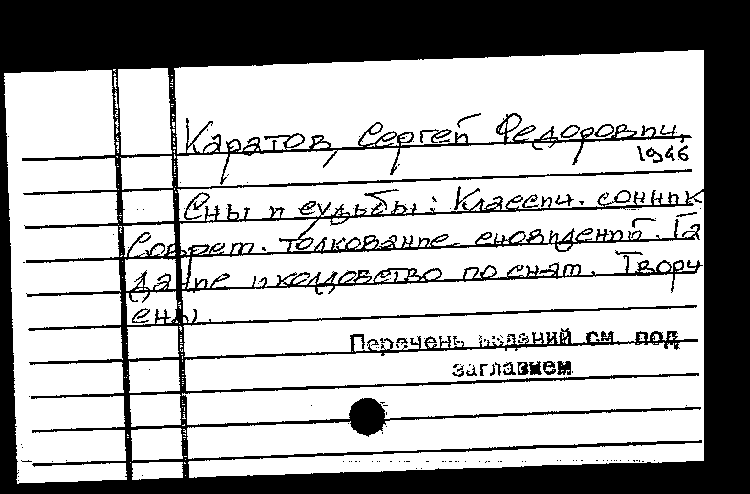 Каратов, Сергей Федорович,
1946
Сны и судьбы: Классич. сонник
Соврем. толкование сновидений. Га
дание и колдовство по снам. Творч
сны.
Перечень изданий см. под
заглавием